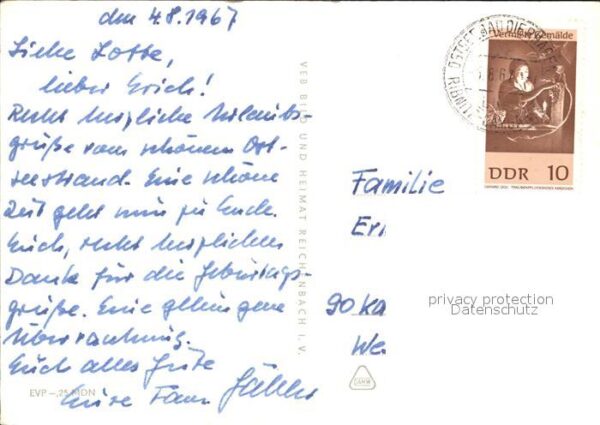 den 4.8.1967
Liebe Lotte,
lieber Erich!
Recht herzliche Urlaubs-
grüße vom schönen Ost-
seestrand. Eine schöne
Zeit geht nun zu Ende.
Euch, recht herzlichen
Dank für die Geburtags-
grüße. Eine gelungene
Überraschung.
Euch alles Gute
Eure Fam.
EVP -,25 MDN
VEB BILD UND HEIMAT REICHENBACH I. V.
OSTSEEBAD DIERHAGEN
RIBNITZ
DDR 10
Familie
Eri
90 Ka
We
privacy protection
Datenschutz